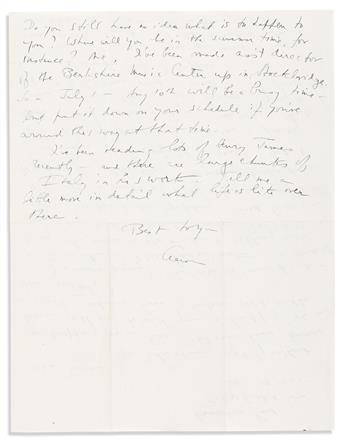 Do you still have no idea what is to happen to
you? Where will you be in the summer time, for
instance? Me, I've been made ass't director
of the Berkshire Music Center up in Stockbridge.
So – July 1 – Aug 10th will be a busy time –
but put it down on your schedule if you're
around this way at that time.
I've been reading lots of Henry James
recently – and there are large chunks of
Italy in his work. Tell me a
little more in detail what life is like over
there.
Best to you
Aaron